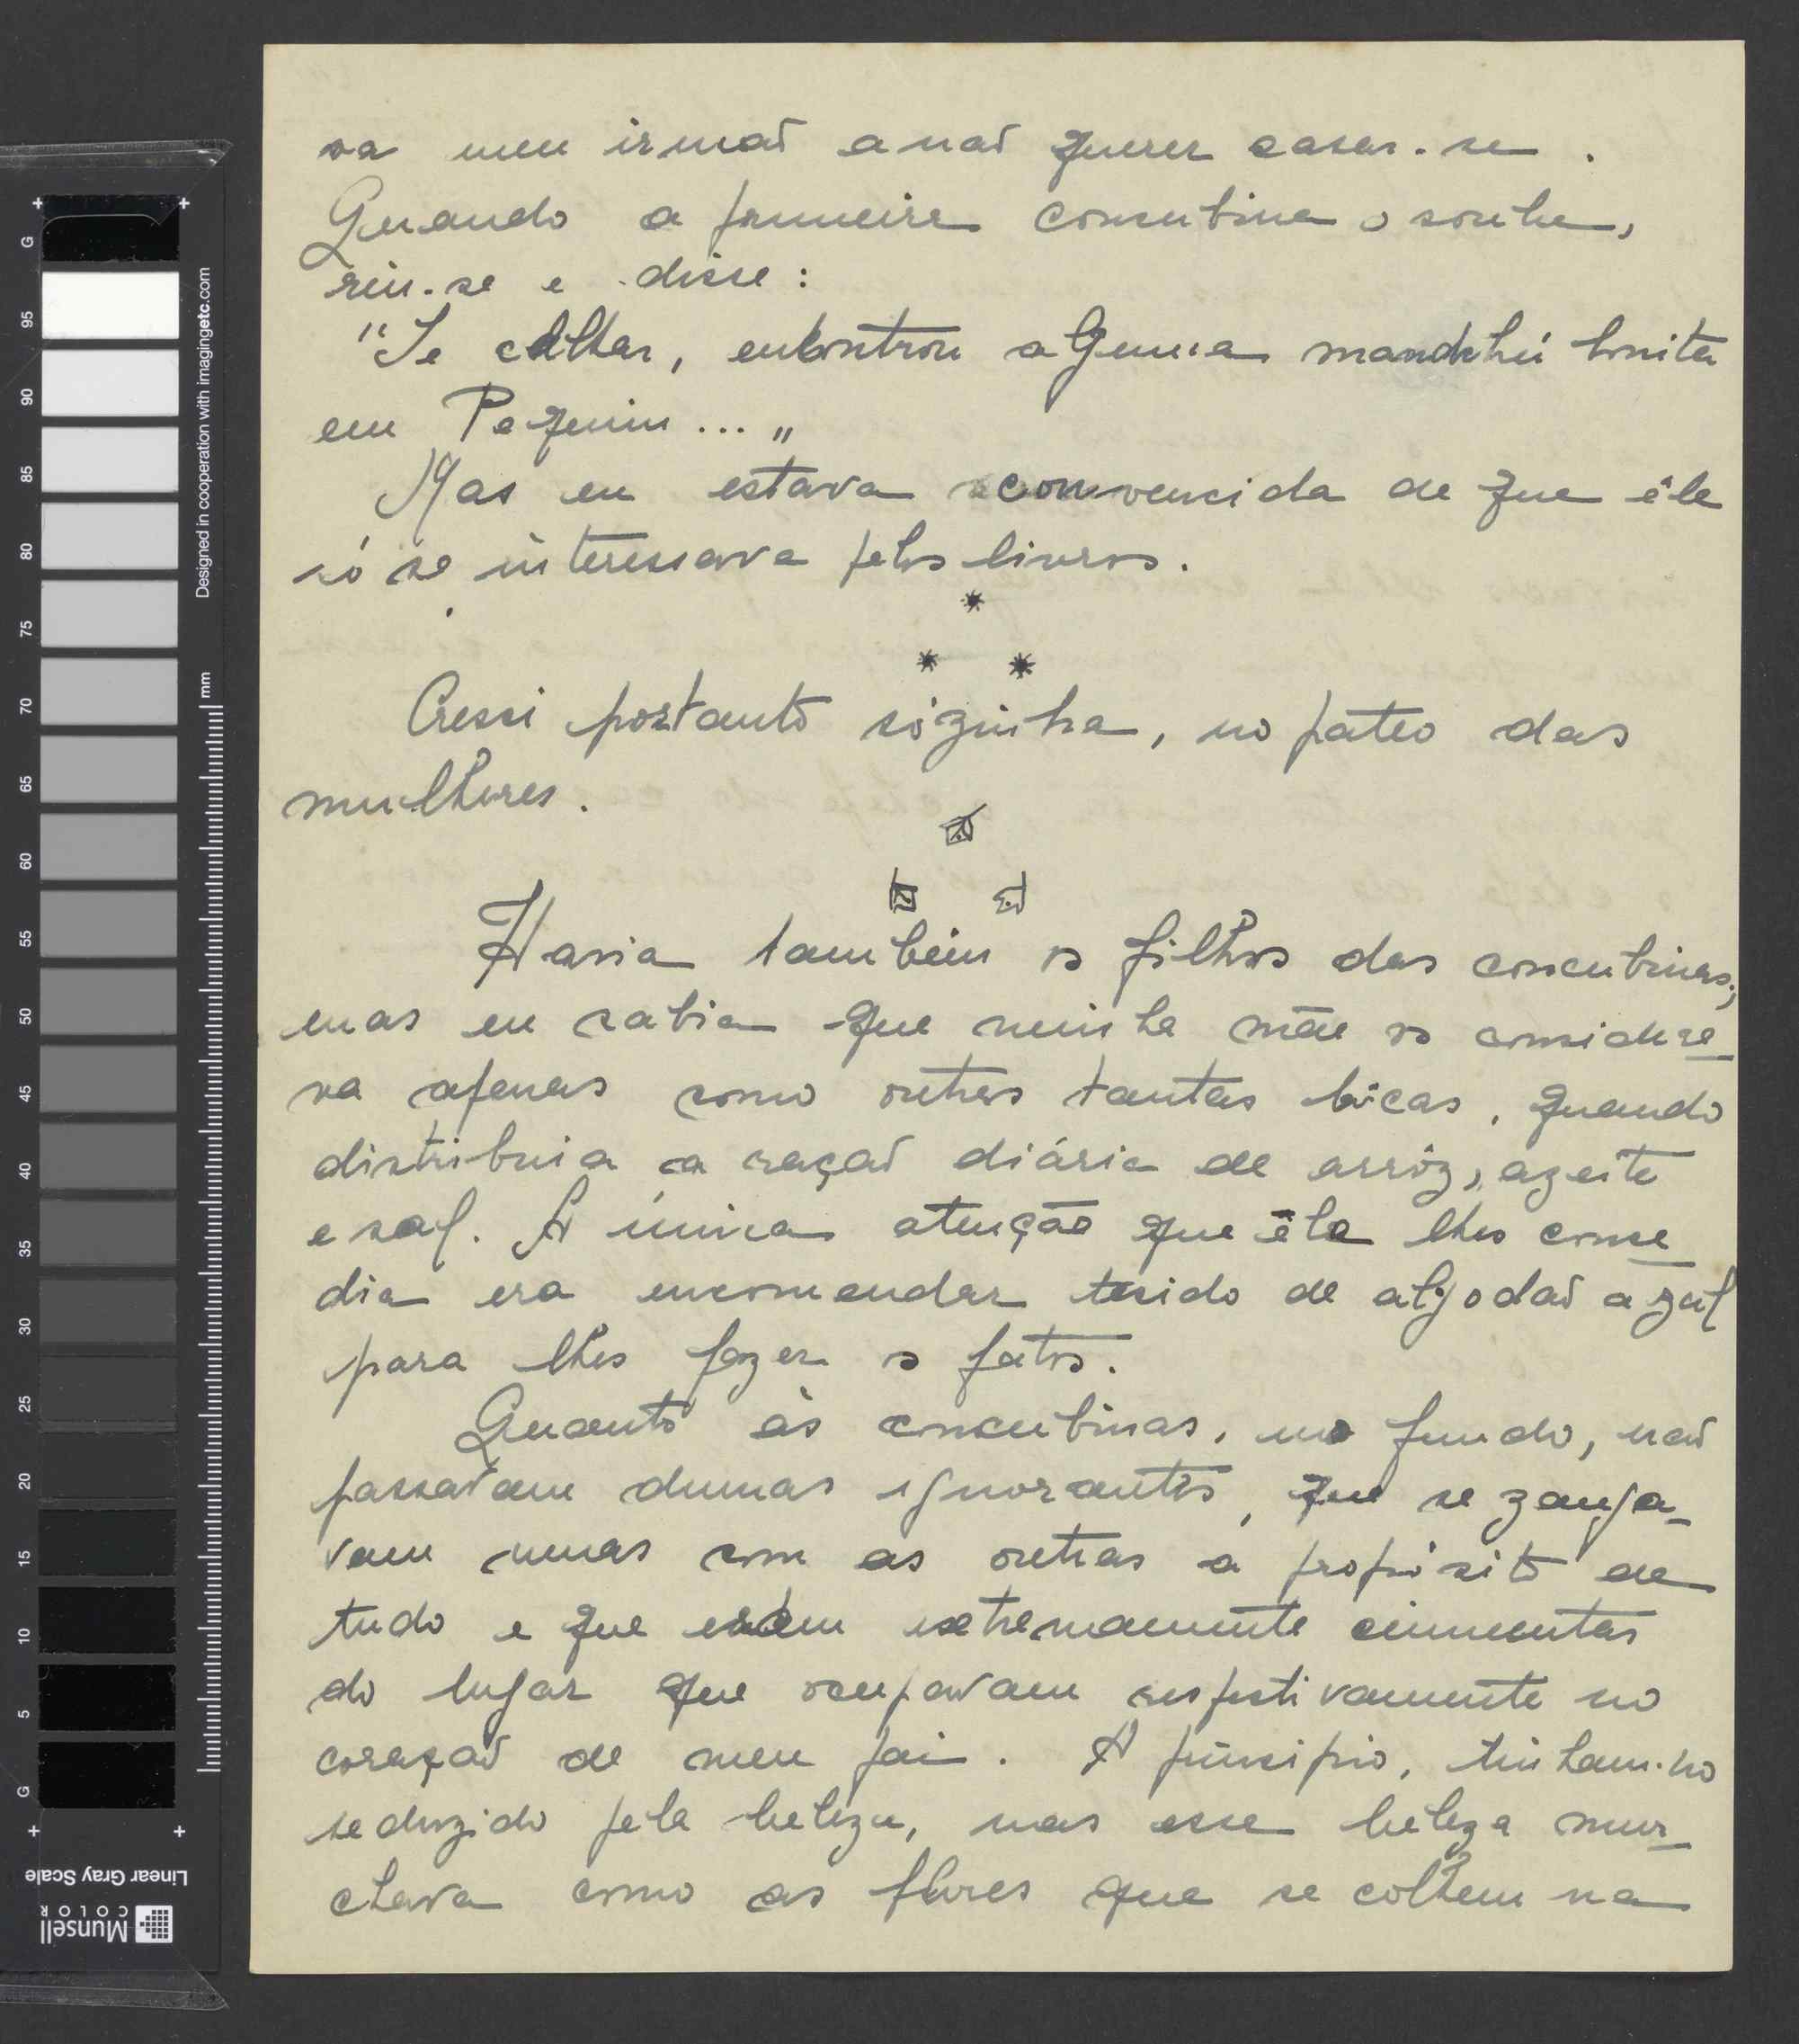 va meu irmaõ a naõ querer casar-se.
Quando a primeira concubina o soube,
riu-se e disse:
"Se calhar, encontrou alguma mandchú bonita
em Pequim... "
Mas eu estava convencida de que êle
só se interessava pelos livros.
*
* *
Cresci portanto sòzinha, no pateo das
mulheres.
Havia tambêm os filhos das concubinas;
mas eu sabia que minha mãe os considera-
va apenas como outras tantas bôcas, quando
distribuia a raçaõ diária de arrôz, azeite
e sal. A única atenção que ela lhes conce-
dia era encomendar tecido de algodaõ azul
para lhes fazer os fatos.
Quanto às concubinas, no fundo, naõ
passavam dumas ignorantes, que se zanga-
vam umas com as outras a propósito de
tudo e que eram extremamente ciumentas
do lugar que ocupavam respectivamente no
coraçaõ de meu pai. A principio, tinham-no
seduzido pela beleza, mas essa beleza mur-
chava como as flores que se colhem na
Designed in cooperation with imagingetc.com
mm
G
95
90
85
80
75
70
65
60
55
50
45
40
35
30
25
20
15
10
5
G
Linear Gray Scale
Munsell
COLOR